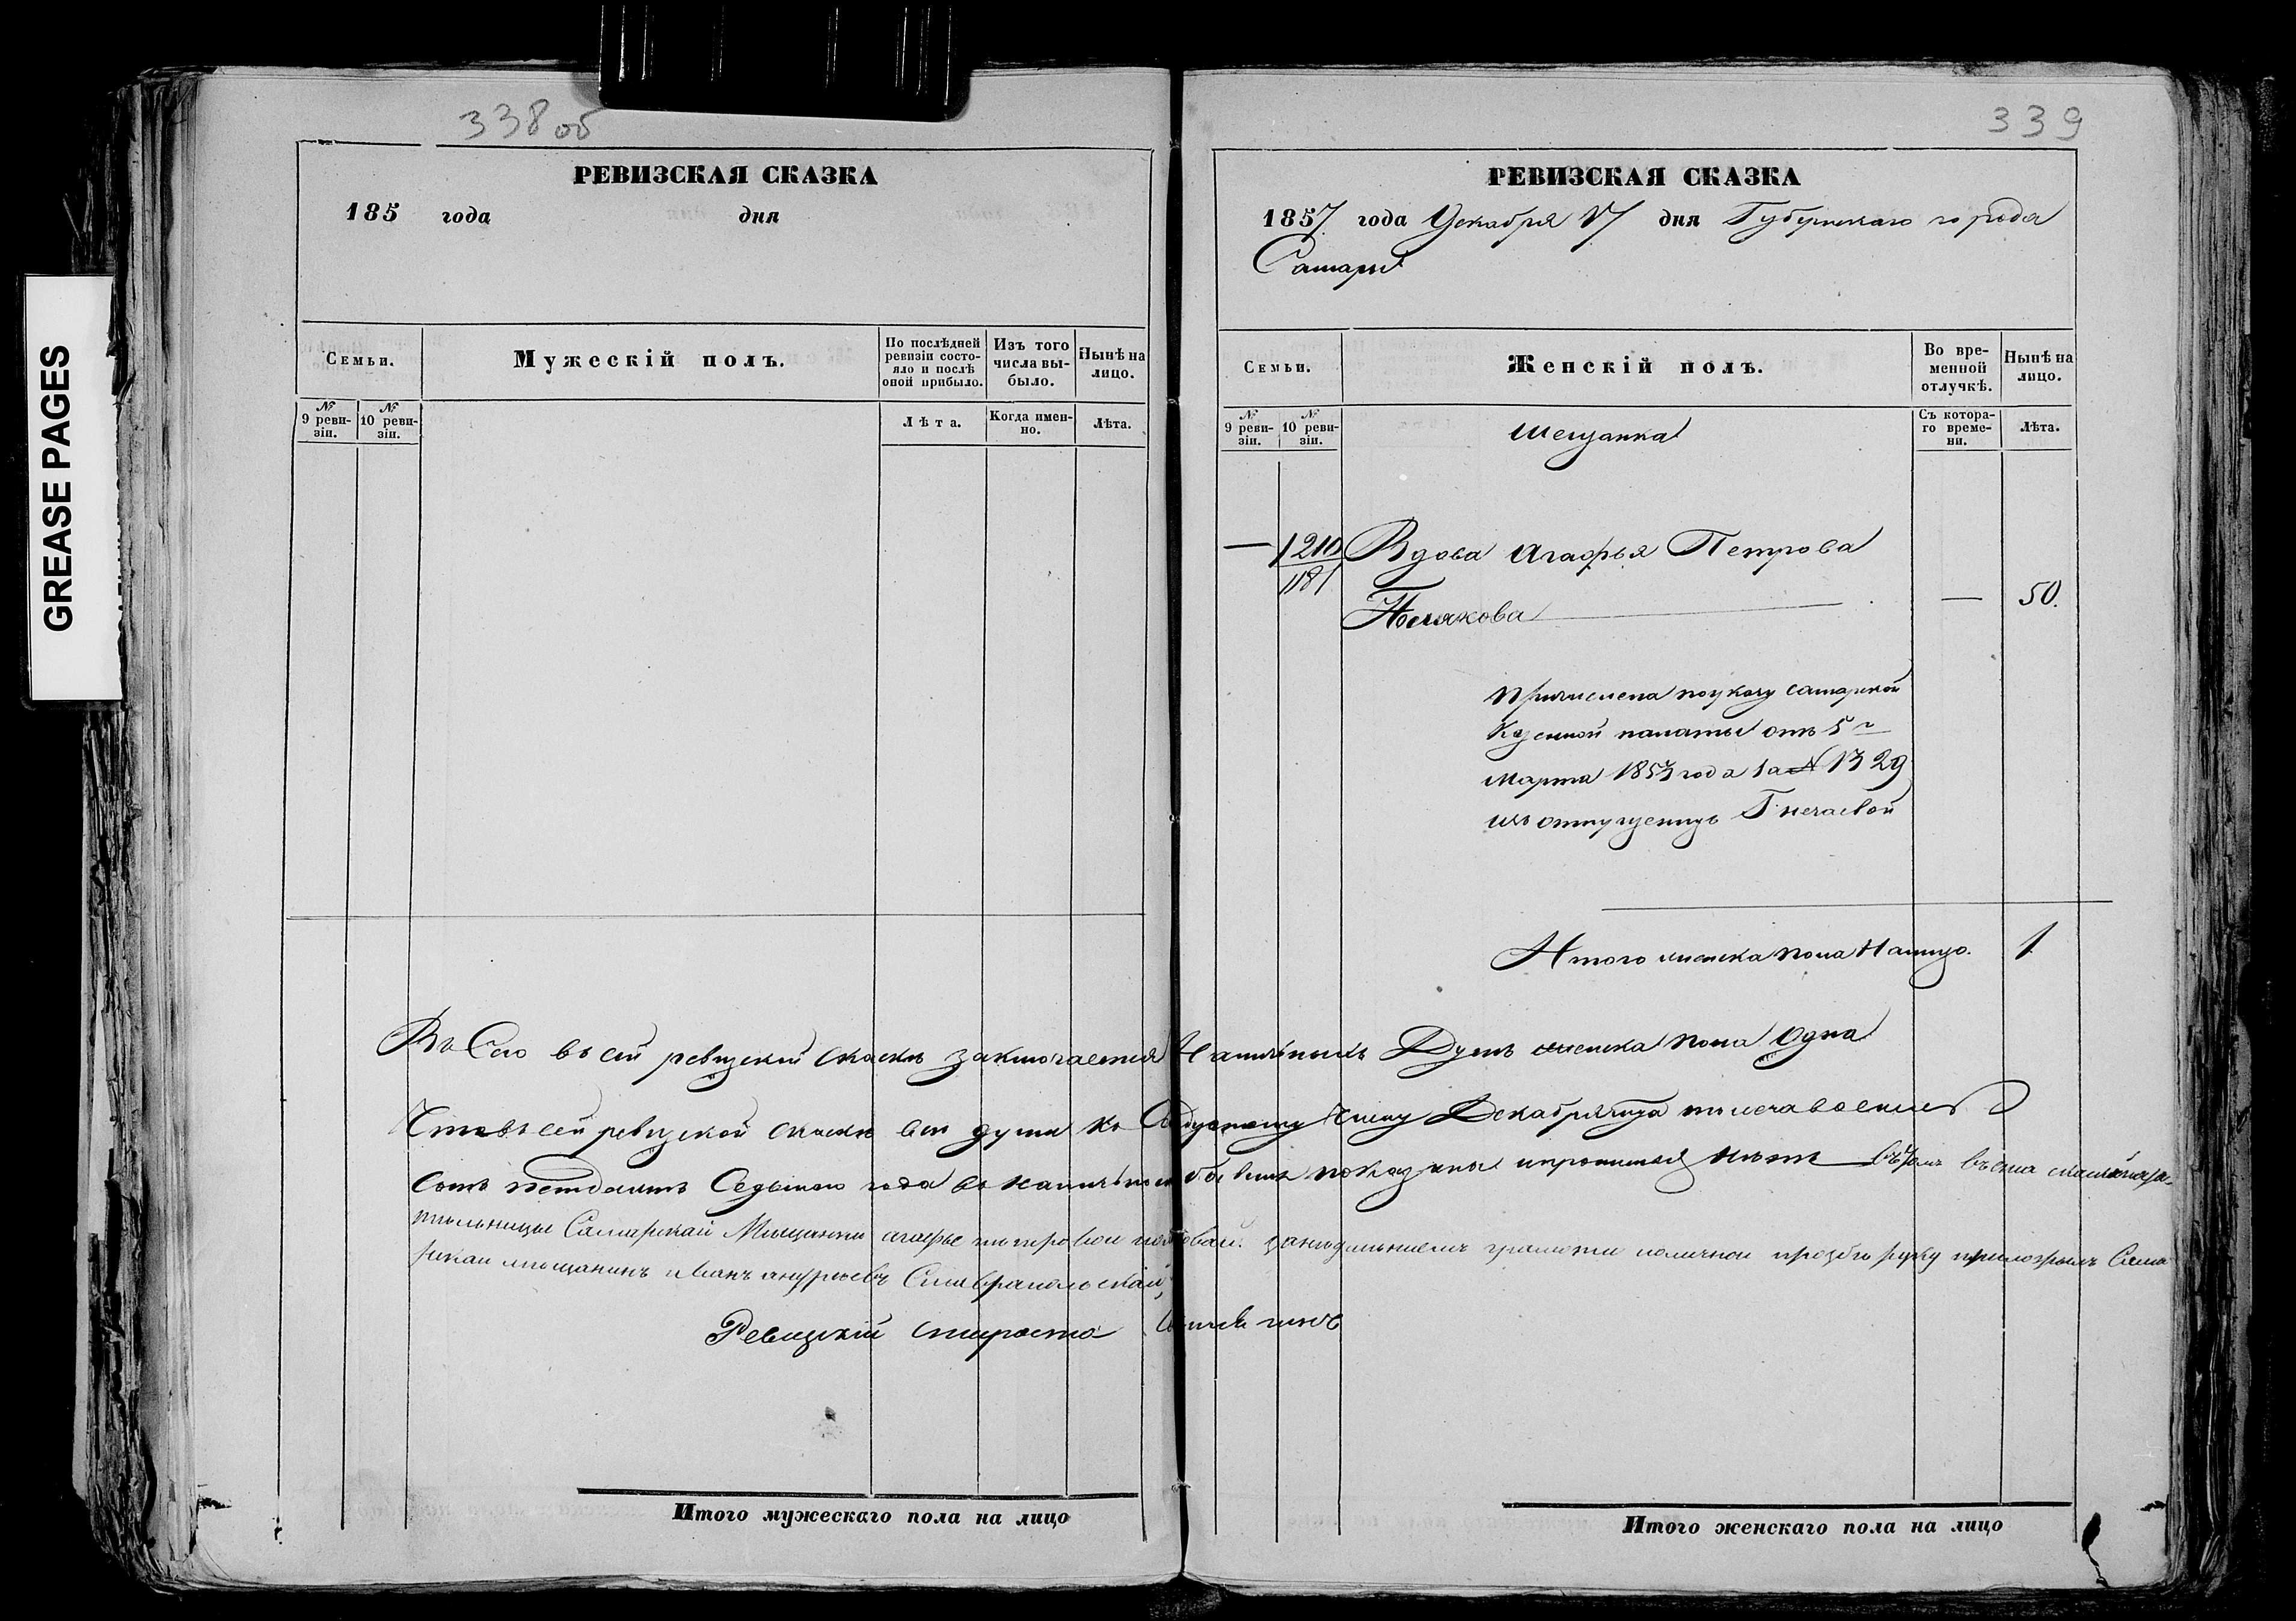 GREASE PAGES
338 об
РЕВИЗСКАЯ СКАЗКА
185 года дня
Семьи.
Мужескій полъ.
По послѣдней ревизіи состо-
яло и послѣ оной прибыло.
Изъ того числа вы-
было.
Нынѣ на лицо.
№ 9 реви-
зіи.
№ 10 реви-
зіи.
Лѣта.
Когда имен-
но.
Лѣта.
339
РЕВИЗСКАЯ СКАЗКА
1857 года Декабря 17 дня Губернскаго города
Самары
Семьи.
Женскій полъ.
Во вре-
менной
отлучкѣ.
Нынѣ на
лицо.
№ 9 реви-
зіи.
№ 10 реви-
зіи.
Съ котора-
го време-
ни.
Лѣта.
Мещанка
— 1210 Вдова Агафья Петрова
1181
Полякова — 50.
Причислена по указу самарской
Казенной палаты отъ 5 г
Марта 1853 года за № 1329
изъ отпущенницъ Г Нечаевой
Итого женска пола Налицо. 1
Въ Сего въ сей ревизской Сказкѣ заключается Наличныхъ Душъ женска пола Одна
Что въ сей ревизской Сказкѣ всѣ души къ Числу Декабря тысеча восемь
Сотъ петдесятъ Седьмого года въ наличности бывшія показаны и прописныхъ нѣтъ въ томъ
Самарской Мещанки агафье петровой грамоты поличной прозбѣ руку приложилъ Сама
рской мещанинъ Иванъ Ставрапольскай,
Ревизскій староста
Итого мужескаго пола на лицо
Итого женскаго пола на лицо